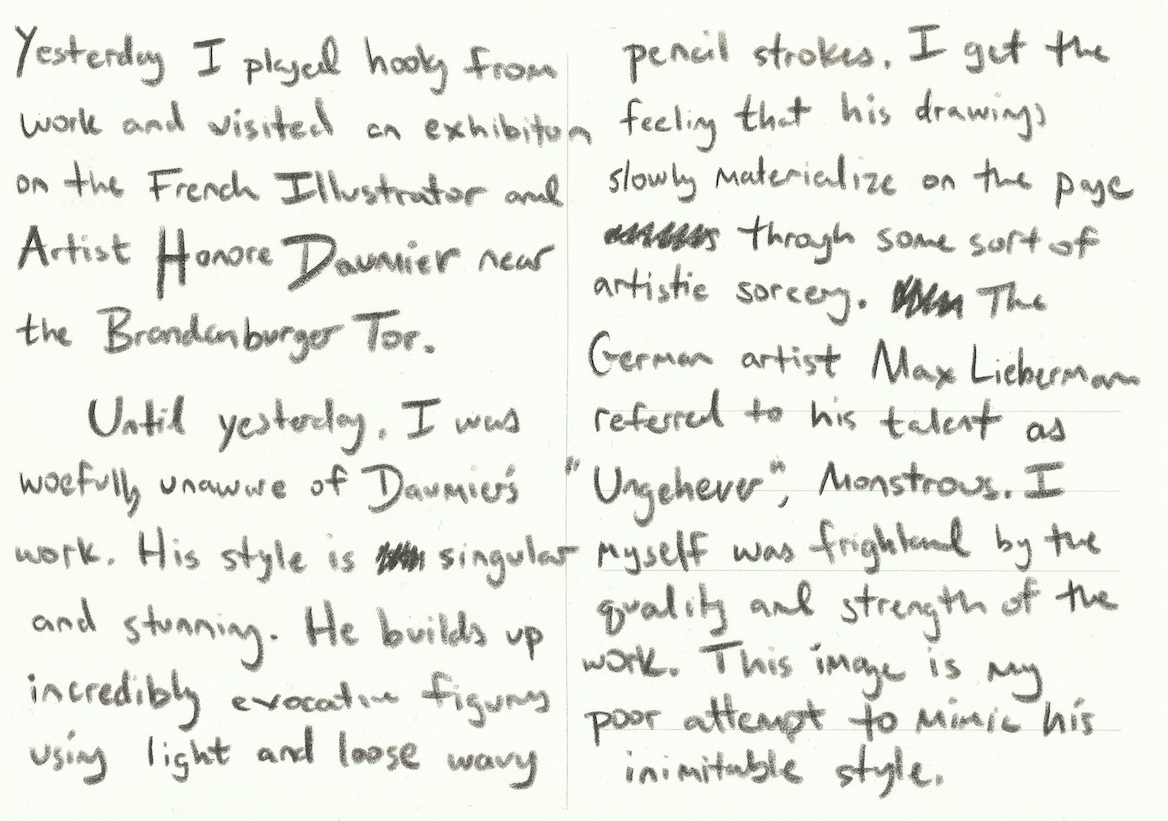 Yesterday I played hooky from
work and visited an exhibiton
on the French Illustrator and
Artist Honore Daumier near
the Brandenburger Tor.
Until yesterday, I was
woefully unaware of Daumier's
work. His style is singular
and stunning. He builds up
incredibly evocative figures
using light and loose wavy
pencil strokes. I get the
feeling that his drawings
slowly materialize on the page
throgh some sort of
artistic sorcery. The
German artist Max Liebermann
referred to his talent as
"Ungeheuer", Monstrous. I
myself was frightened by the
quality and strength of the
work. This image is my
poor attempt to mimic his
inimitable style.